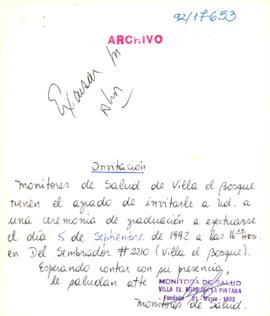 92/17653
ARCHIVO
Excusar
Invitación
Monitores de Salud de Villa el Bosque
tienen el agrado de invitarle a Ud. a
una ceremonia de graduación a efectuarse
el día 5 de Septiembre de 1992 a las 16 HRS.
en Del Sembrador # 2210 (Villa el Bosque).
Esperando contar con su presencia,
le saludan atte
MONITORES DE SALUD
VILLA EL BOSQUE LA PINTANA
Fundado Mayo - 1992
Monitores de Salud.